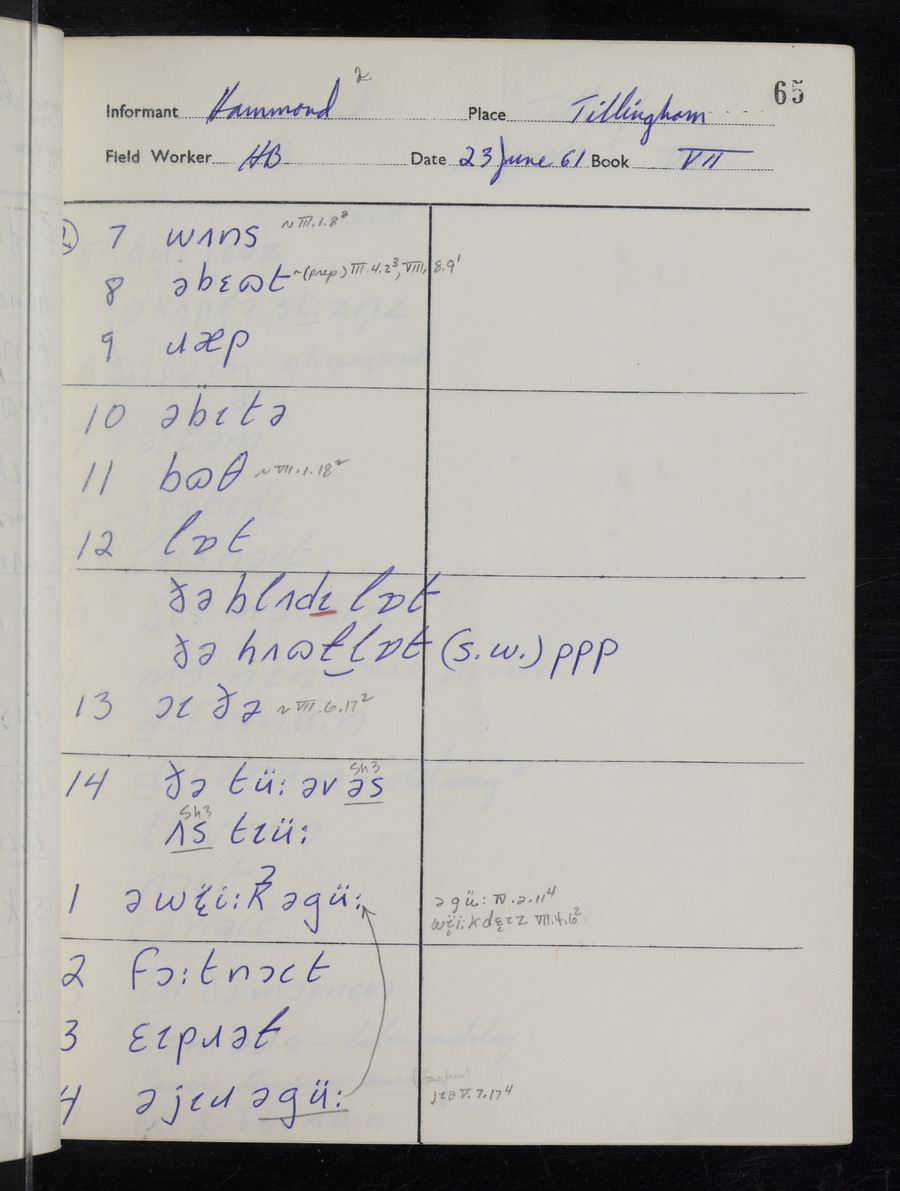 2
65
Informant Hammond Place Tillingham
Field Worker HB Date 23 June 61 Book VII
7 wʌns ~ VII.1.8⁸
8 əbɛɷt ~(prep) III.4.2³, VIII.8.9¹
9 ɹæp
10 əbɪtə
11 bɷθ ~ VII.1.18²
12 lɒt
ðə blʌdɪ lɒt
ðə hʌɷɫ lɒt (s.w.) ppp
13 ɔɪðə ~ VII.6.17²
14 ðə tü: əv əs
Sh3
Sh3
ʌs tɪü:
1 əwɛ̈i:k əgü:
əgü: IV.2.11⁴
wɛ̈i:kdɛɪz VII.4.6²
2 fɔ:tnəɪt
3 ɛɪpɹəɫ
4 əjɪɹ əgü:
jɪə V.7.17⁴